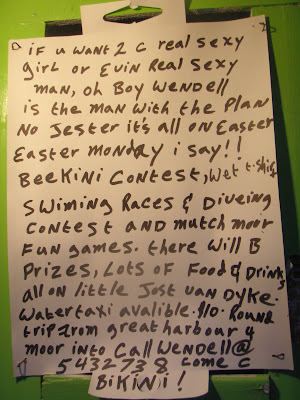 if u want 2 c real sexy
girl or Evin Real sexy
man, oh Boy Wendell
is the man with the plan
No Jester it's all on Easter
Easter monday i say!!
Beekini Contest, wet t-shirt
Swiming Races & Diveing
contest and mutch moor
fun games. there will B
Prizes, Lots of food & Drinks
all on little Jost van Dyke.
Watertaxi avalible. $10. Round
trip from great harbour 4
moor info Call Wendell @
5432738 come c
Bikini!